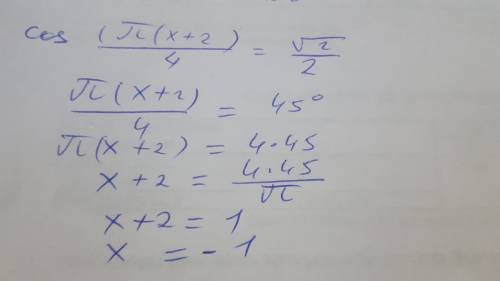 cos (π(x+2) / 4 = √2 / 2
π(x+2) / 4 = 45°
π(x+2) = 4·45
x+2 = 4·45 / π
x+2 = 1
x = -1